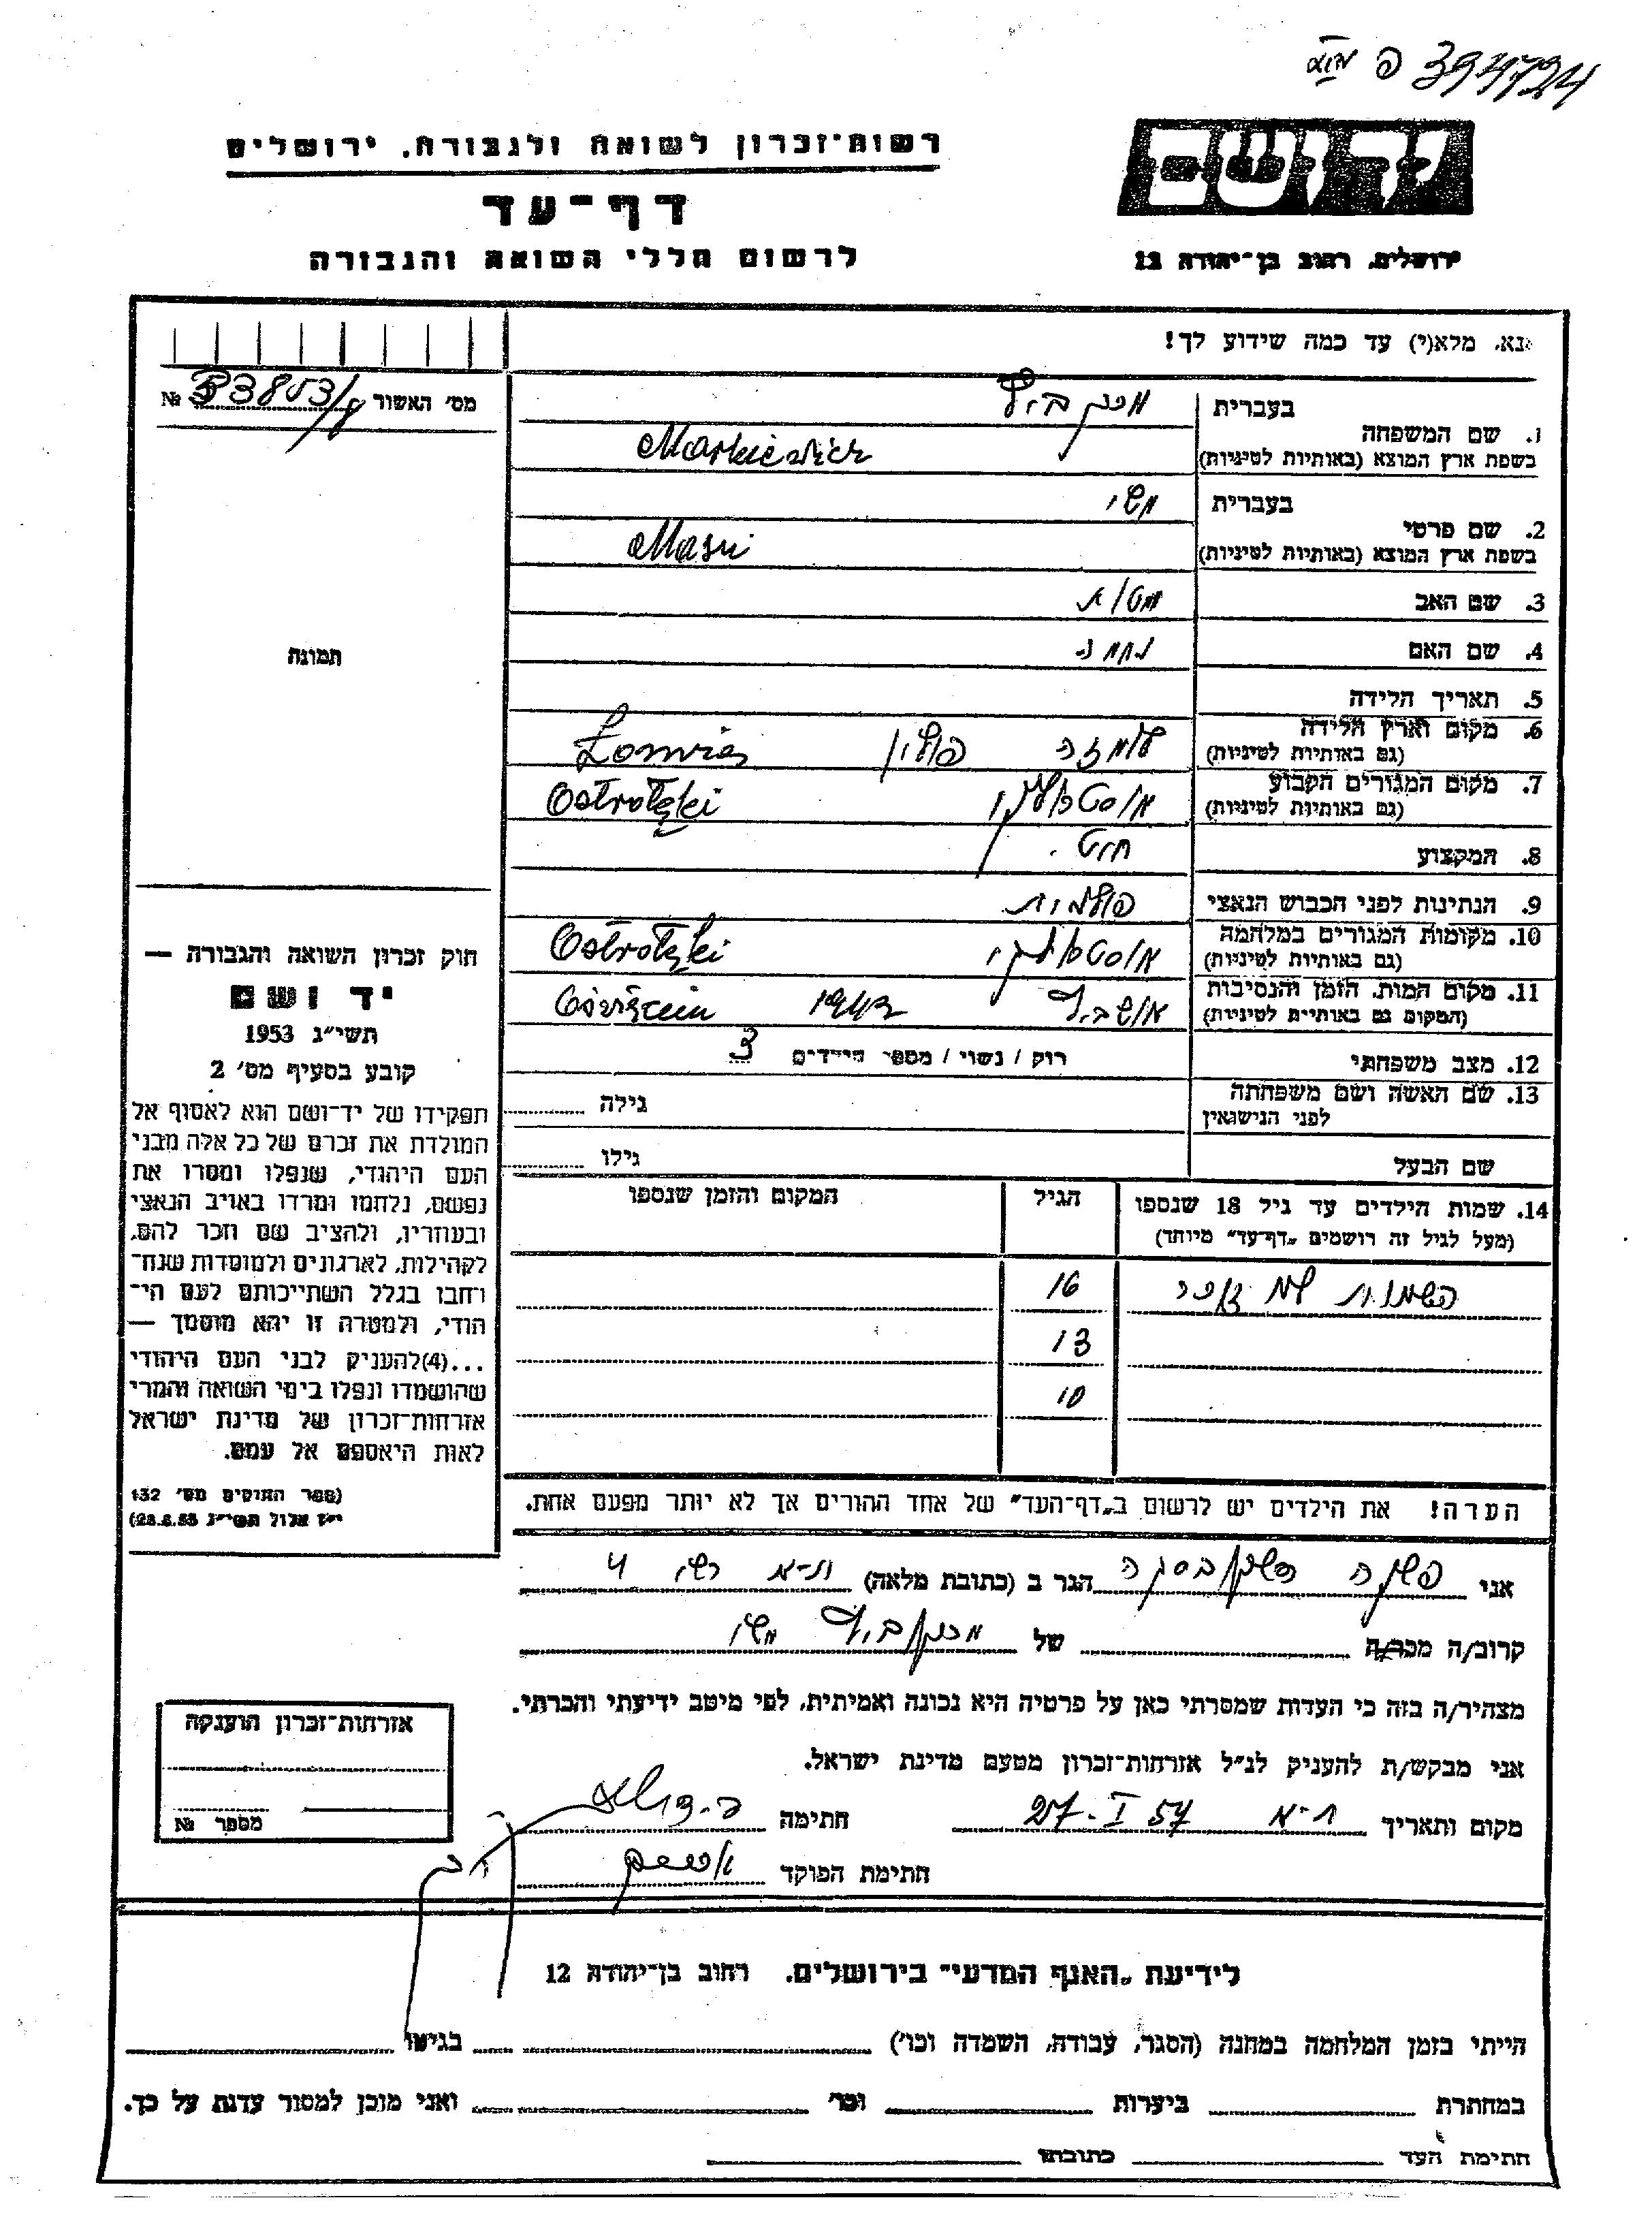 394724 פ
רשות־זכרון לשואה ולגבורה, ירושלים
דף־עד
לרשום חללי השואה והגבורה
יד ושם
ירושלים, רחוב בן־יהודה 12
נא, מלא(י) עד כמה שידוע לך!
מס' האשור № 33853/
1. שם המשפחה
בעברית
בשפת ארץ המוצא (באותיות לטיניות) Markiewicz
2. שם פרטי
בעברית משי
בשפת ארץ המוצא (באותיות לטיניות) Masni
3. שם האב
4. שם האם נחמה
5. תאריך הלידה
6. מקום וארץ הלידה
(גם באותיות לטיניות) לומזה פולין
7. מקום המגורים הקבוע
(גם באותיות לטיניות) Ostrołęki
8. המקצוע חיט.
9. הנתינות לפני הכבוש הנאצי פולנית
10. מקומות המגורים במלחמה
(גם באותיות לטיניות) Ostrołęki
11. מקום המות, הזמן והנסיבות
(המקום גם באותיות לטיניות) אושביץ 1943
12. מצב משפחתי רוק / נשוי / מספר הילדים 3
13. שם האשה ושם משפחתה
לפני הנישואין גילה
שם הבעל גילו
14. שמות הילדים עד גיל 18 שנספו
(מעל לגיל זה רושמים „דף־עד" מיוחד)
הגיל
המקום והזמן שנספו
השמות לא זוכר 16
13
10
הערה! את הילדים יש לרשום ב„דף־העד" של אחד ההורים אך לא יותר מפעם אחת.
תמונה
חוק זכרון השואה והגבורה —
יד ושם
תשי״ג 1953
קובע בסעיף מס' 2
תפקידו של יד־ושם הוא לאסוף אל
המולדת את זכרם של כל אלה מבני
העם היהודי, שנפלו ומסרו את
נפשם, נלחמו ומרדו באויב הנאצי
ובעוזריו, ולהציב שם וזכר להם,
לקהילות, לארגונים ולמוסדות שנח־
רחבו בגלל השתייכותם לעם הי־
הודי, ולמטרה זו יהא מוסמך —
...(4)להעניק לבני העם היהודי
שהושמדו ונפלו בימי השואה והמרי
אזרחות־זכרון של מדינת ישראל
לאות היאספם אל עמם.
(ספר החוקים מס' 132
י״ז אלול תשי״ג 28.8.53)
אני הגר ב (כתובת מלאה) ת־א 4
קרוב/ה מכר/ה של משי
מצהיר/ה בזה כי העדות שמסרתי כאן על פרטיה היא נכונה ואמיתית, לפי מיטב ידיעתי והכרתי.
אני מבקש/ת להעניק לנ״ל אזרחות־זכרון מטעם מדינת ישראל.
מקום ותאריך ת־א 27-I 57 חתימה
חתימת הפוקד
אזרחות־זכרון הוענקה
מספר №
לידיעת „האגף המדעי" בירושלים, רחוב בן־יהודה 12
הייתי בזמן המלחמה במחנה (הסגר, עבודה, השמדה וכו') בגיטו
במחתרת ביערות וכו' ואני מוכן למסור עדות על כך.
חתימת העד כתובתו